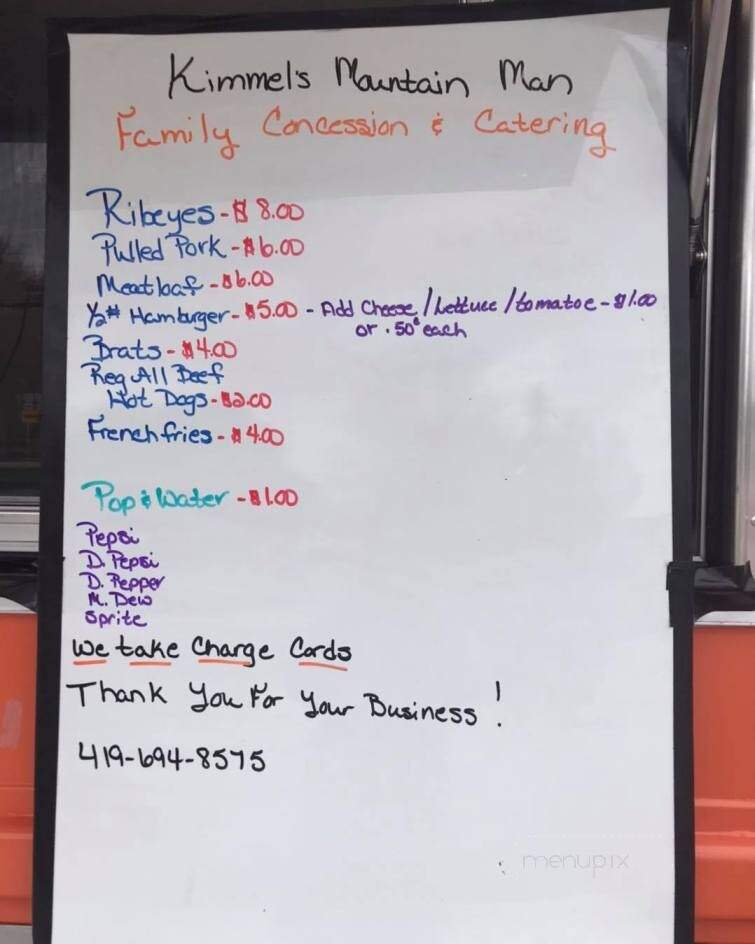 Kimmel's Mountain Man
Family Concession & Catering
Ribeyes - $8.00
Pulled Pork - $6.00
Meatloaf - $6.00
1/2# Hamburger - $5.00 - Add Cheese/Lettuce/tomatoe - $1.00
or .50¢ each
Brats - $4.00
Reg All Beef
Hot Dogs - $2.00
French fries - $4.00
Pop & Water - $1.00
Pepsi
D. Pepsi
D. Pepper
M. Dew
Sprite
We take Charge Cards
Thank You For Your Business!
419-694-8575
menupix